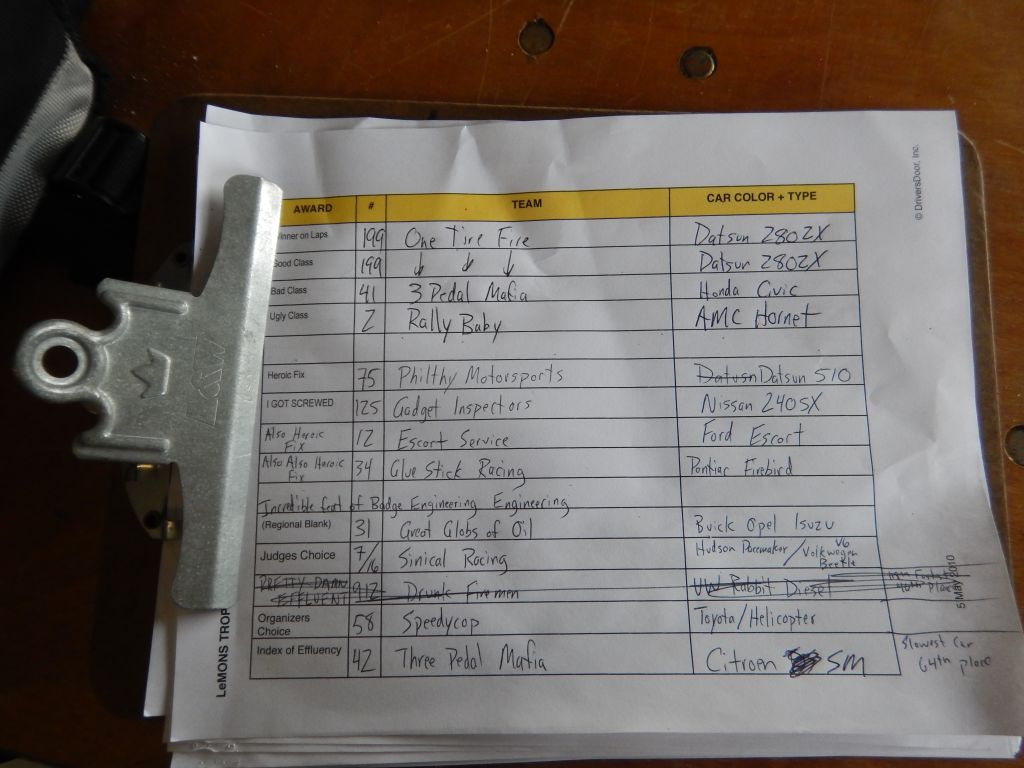 © DriversDoor, Inc.
AWARD # TEAM CAR COLOR + TYPE
inner on Laps 199 One Tire Fire Datsun 280ZX
Good Class 199 ↓ ↓ ↓ Datsun 280ZX
Bad Class 41 3 Pedal Mafia Honda Civic
Ugly Class 2 Rally Baby AMC Hornet
Heroic Fix 75 Philthy Motorsports Datusn Datsun 510
I GOT SCREWED 125 Gadget Inspectors Nissan 240SX
Also Heroic Fix 12 Escort Service Ford Escort
Also Also Heroic Fix 34 Glue Stick Racing Pontiac Firebird
Incredible feat of Badge Engineering Engineering
(Regional Blank) 31 Great Globs of Oil Buick Opel Isuzu
Judges Choice 7/6 Sinical Racing Hudson Pacemaker / V6 Volkswagen Beetle
PRETTY DAMN EFFLUENT 912 Drunk Firemen VW Rabbit Diesel
Organizers Choice 58 Speedycop Toyota/Helicopter
Index of Effluency 42 Three Pedal Mafia Citroen SM
Slowest Car
64th place
LeMONS TROP
5 May 2010